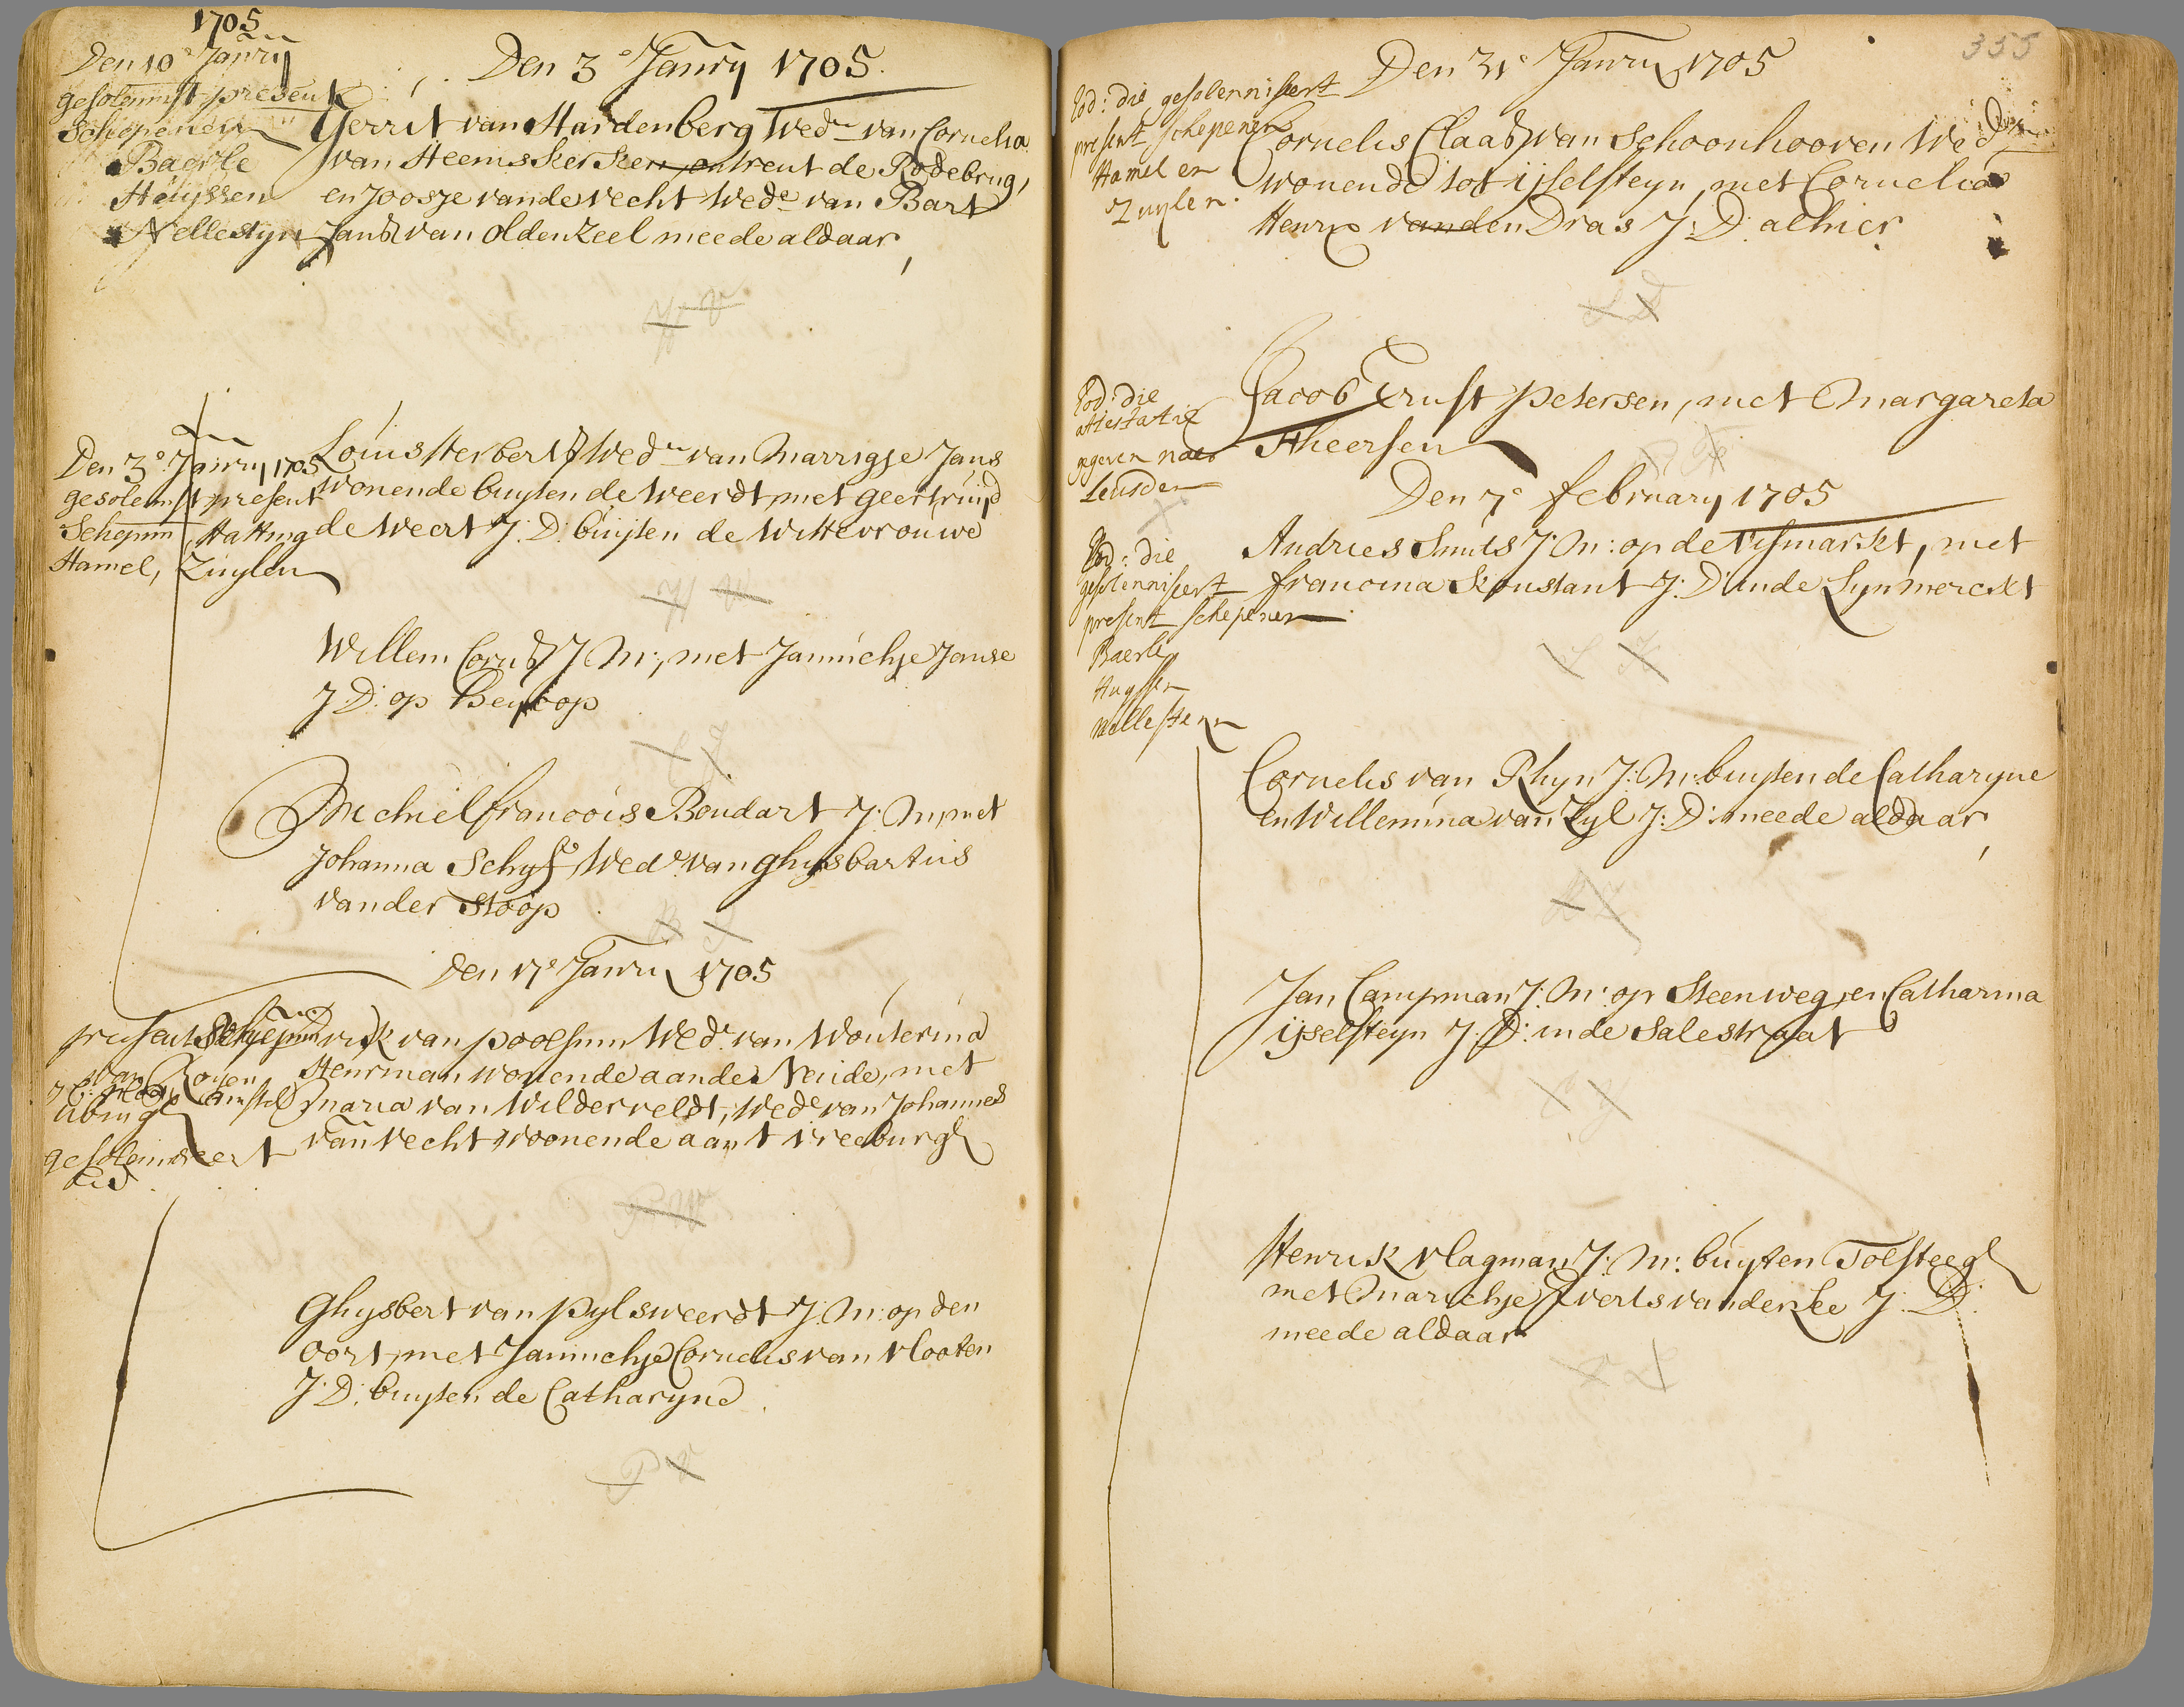 1705
Den 10e Janry
gesolemnist present
Schepenen
Baerle
Heijssen
Nellestijn
Den 3e Janry 1705.
Gerrit van Hardenberg Wedr van Cornelia
van Heemskerken, ontrent de Rodebrug,
en Joosje vande Vecht Wede van Bart
Jansz van Oldenzeel meede aldaar,
Den 3e Janry 1705
gesolemst present
Schepnn, Hatting
Hamel, Zuylen
Louis Herbertsz Wedr van Marrigje Jans
wonende buyten de Weerdt, met geertruijd
de Weert J: D: buijten de Wittevrouwe
Willem Cornsz J: M:, met Jannichje Janse
J: D: op Heycop
Michiel francois Boudart J: M, met
Johanna Schyf, Wede van Ghijsbartus
vander Stoop
Den 17e Janry 1705
present Schepenn
van Royen
Amstel
gesolemneert
van Poolsum Wedr van Wouterina
Heurman wonende aande Neude, met
Maria van Wilderveldt, Wede van Johannes
van Vecht woonende aan t vreeburg
Ghysbert van Pylsweerdt J: M: op den
Oort, met Jannichje Cornelis van Vlooten
J: D: buyten de Catharyne
355
Eod: die gesolenniseert
present schepenen
Hamel en
Zuylen.
Den 31e Janry 1705
Cornelis Claasz van Schoonhooven Wedr
wonende tot ijselsteyn, met Cornelia
Henrix vanden Dras J: D: alhier
Eod: die
attestatie
gegeven naer
Leusden
Jacob Ernst Petersen, met Margareta
Theersen
Den 7e february 1705
Eod: die
gesolenniseert
present schepenen
Baerle
Huyssen
Nellesteyn
Andries Smits J: M: op de Vismarkt, met
francina Konstant J: D: inde Lynmerckt
Cornelis van Rhyn J: M: buyten de Catharyne
en Willemina van Zyl J: D: meede aldaar,
Jan Campman J: M: op Steenweg, en Catharina
ijselsteyn J: D: inde Salestraat
Henrik Vlagman J: M: buyten Tolsteeg
met Marichje Everts vander Lee J: D:
meede aldaar